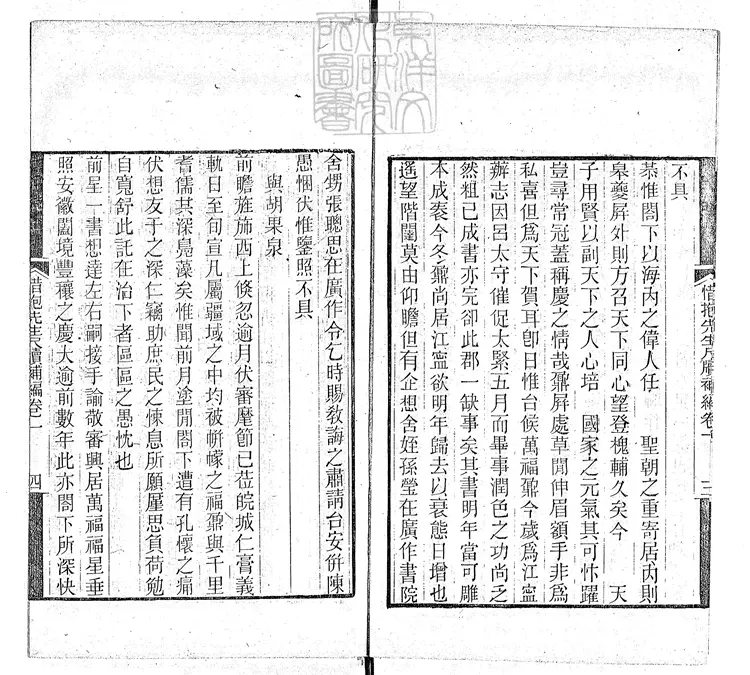 不具
恭惟閤下以海內之偉人任　聖朝之重寄居丙則
皋夔屛外則方召天下同心望登槐輔久矣今　天
子用賢以副天下之人心培　國家之元氣其可忭躍
豈尋常冠蓋稱慶之情哉鼐屛處草閒伸眉額手非爲
私喜但爲天下賀耳卽日惟台候萬福鼐今歲爲江寧
辦志因呂太守催促太緊五月而畢事潤色之功尚乏
然粗已成書亦完卻此郡一缺事矣其書明年當可雕
本成袠今冬鼐尚居江寧欲明年歸去以衰態日增也
遥望階闥莫由仰瞻但有企想舍姪孫瑩在廣作書院
惜抱先生尺牘補編卷一
三
舍甥張聰思在廣作令乞時賜敎誨之肅請台安倂陳
愚悃伏惟鑒照不具
與胡果泉
前瞻旌旆西上倏忽逾月伏審麾節已莅皖城仁膏義
軌日至旬宣凡屬疆域之中均被帡幪之福鼐與千里
耆儒其深鳧藻矣惟聞前月塗閒閤下遭有孔懷之痛
伏想友于之深仁竊助庶民之悚息所願厪思負荷勉
自寬舒此託在治下者區區之愚忱也
前星一書想達左右嗣接手諭敬審興居萬福福星垂
照安徽闔境豐穰之慶大逾前數年此亦閤下所深快
惜抱先生尺牘補編卷一
四